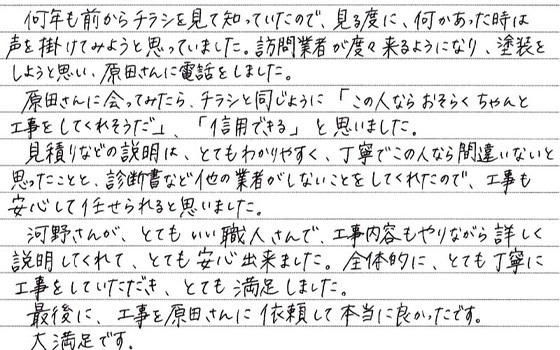 何年も前からチラシを見て知っていたので、見る度に、何かあった時は
声を掛けてみようと思っていました。訪問業者が度々来るようになり、塗装を
しようと思い、原田さんに電話をしました。
原田さんに会ってみたら、チラシと同じように「この人ならおそらくちゃんと
工事をしてくれそうだ」、「信用できる」と思いました。
見積りなどの説明は、とてもわかりやすく、丁寧でこの人なら間違いないと
思ったことと、診断書など他の業者がしないことをしてくれたので、工事も
安心して任せられると思いました。
河野さんが、とてもいい職人さんで、工事内容もやりながら詳しく
説明してくれて、とても安心出来ました。全体的に、とても丁寧に
工事をしていただき、とても満足しました。
最後に、工事を原田さんに依頼して本当に良かったです。
大満足です。